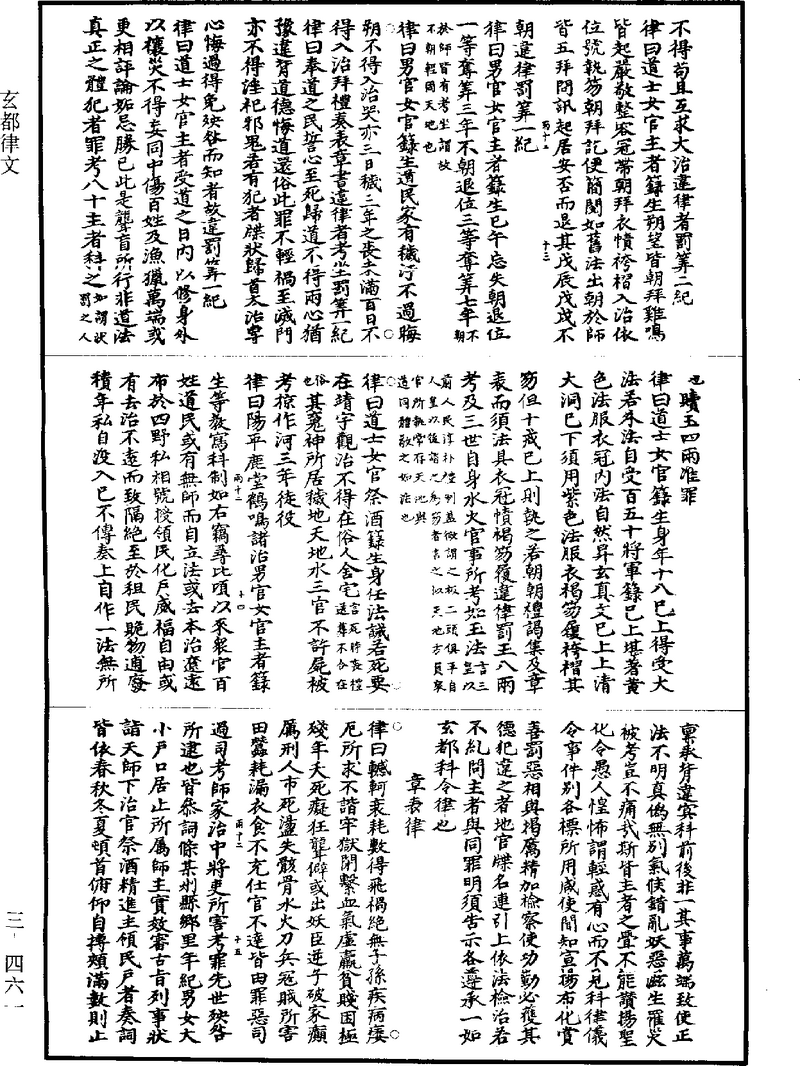 不得苟且互求大治違律者罰筭二紀
律曰道士女官主者籙生朔望皆朝拜雞鳴
皆起嚴敬整容冠帶朝拜衣幘袴褶入治依
位號執笏朝拜訖便簡閱如舊法出朝於師
皆五拜問訊起居安否而退其戊辰戊戌不
十三
朝違律罰筭一紀
律曰男官女官主者籙生已午忘失朝退位
一等奪筭三年不朝退位三等奪筭七年不朝
於師皆有考坐謂故
不朝輕國天地也
律曰男官女官籙生道民家有穢污不過晦
朔不得入治哭亦三日穢三年之喪未滿百日不
得入治拜禮奏表章書違律者考坐罰筭一紀
律曰奉道之民誓心至死歸道不得兩心猶
豫違背道德悔道還俗此罪不輕禍至滅門
亦不得淫祀邪鬼若有犯者牒狀歸首大治專
心悔過得免殃咎而知者故違罰筭一紀
律曰道士女官主者受道之日內以修身外
以禳災不得妄同中傷百姓及漁獵萬端或
更相評論妬忌勝己此是聾盲所行非道法
真正之體犯者罪考八十主者科之如謂狀罰之人
也 贖玉四兩准罪
律曰道士女官籙生身年十八已上得受大
法若外法自受百五十將軍籙已上堪著黃
色法服衣冠內法自然昇玄真文已上上清
大洞已下須用紫色法服衣褐笏履袴褶其
笏但十戒已上則執之若朝朝禮謁集及章
表而須法具衣冠幘褐笏履違律罰玉八兩
考及三世自身水火官事所考如玉法言三皇以
前人民淳朴
官所執常存天地與
道同體敬之如在也
律曰道士女官祭酒籙生身任法誡若死要
在靖宇觀治不得在俗人舍宅言死時喪禮送葬不合在
俗也其冤神所居穢地天地水三官不許屍被
考掠作河三年徒役
律曰陽平鹿堂鶴鳴諸治男官女官主者籙
十四
生等敎寫科制如右竊尋比頃以來衆官百
姓道民或有無師而自立法或去本治遼遠
布於四野私相號授領民化戶威福自由或
有去治不遠而致隔絕至於租民賧物逋廢
積年私自沒入已不傳奏上自作一法無所
稟承背違冥科前後非一其事萬端致使正
法不明真僞無別氣候錯亂妖惡滋生羅災
被考豈不痛哉斯皆主者之舋不能讚揚聖
化令愚人惶怖謂輕惑有心而不見科律儀
令事件別各標所用咸使聞知宣揚布化賞
善罰惡相與揭厲精加檢察使功勤必獲其
德犯違之者地官牒名連引上依法檢治若
不糺問主者與同罪明須告示各遵承一如
玄都科令律也
章表律
律曰轗軻衰耗數得飛禍絕無子孫疾病悽
厄所求不諧牢獄閉繫血氣虛羸貧賤困極
殘年夭死癡狂聾僻或出妖臣逆子破家癲
厲刑人市死盪失骸骨水火刀兵寇賊所害
田蠶耗漏衣食不充仕官不達皆由罪惡司
十五
過司考師家治中將吏所害考罪先世殃咎
所逮也皆恭詞條某州縣鄉里年紀男女大
小戶口居止所屬師主實效審古肯列事狀
詣天師下治官祭酒精進主領民戶者奏詞
皆依春秋冬夏頓首俯仰自搏頰滿數則止
玄都律文
三-四六一